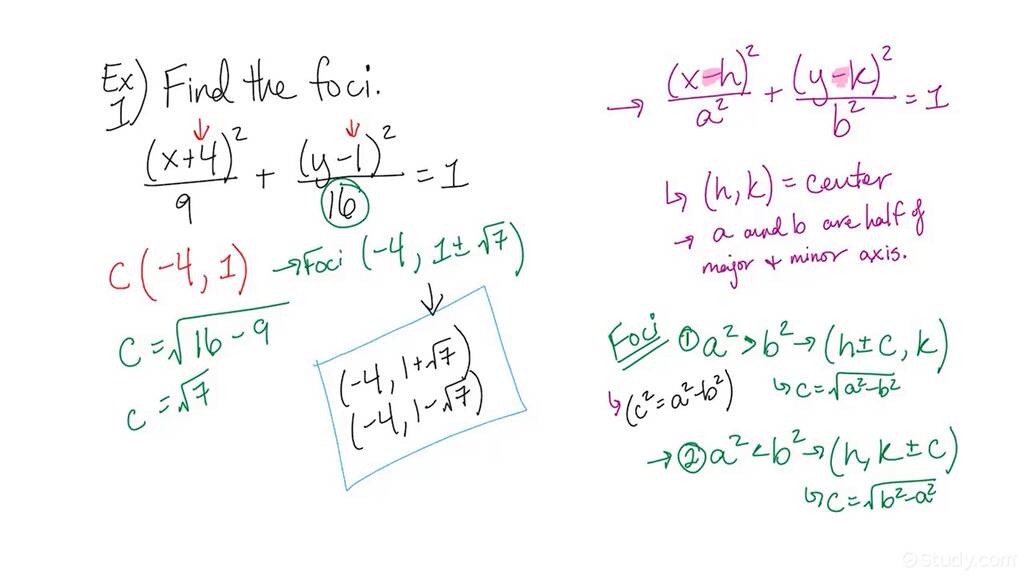 Ex) Find the foci.
1)
(x+4)²/9 + (y-1)²/16 = 1
C(-4, 1) → Foci (-4, 1±√7)
C = √16-9
c = √7
(-4, 1+√7)
(-4, 1-√7)
→ (x-h)²/a² + (y-k)²/b² = 1
↳ (h, k) = center
→ a and b are half of
major & minor axis.
Foci ① a² > b² → (h±c, k)
↳ c = √a²-b²
↳ (c² = a²-b²)
→ ② a² < b² → (h, k±c)
↳ c = √b²-a²
©Study.com